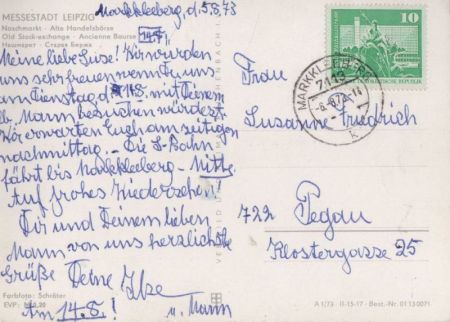 MESSESTADT LEIPZIG
Naschmarkt - Alte Handelsbörse
Old Stock-exchange - Ancienne Bourse
Нашмаркт - Старая Биржа
Markkleeberg, d. 5.8.73
14.8.
Meine liebe Suse! Wir würden
uns sehr freuen wenn Du uns
am Dienstag d. 14.8. mit Deinem
lb. Mann besuchen würdest.
Wir erwarten Euch am zeitigen
nachmittag. - Die S-Bahn
fährt bis Markkleeberg - Mitte.
Auf frohes Wiedersehen!
Dir und Deinem lieben
Mann von uns herzlichste
Grüße Deine Ilse
u. Mann
Am 14.8.!
Farbfoto: Schröter
EVP: M 0,20
10
MARKKLEEBERG
7113
-6.8.73-11
k
Frau
Susanne Friedrich
722 Pegau
Klostergasse 25
A 1/73 II-15-17 Best.-Nr. 01 13 0071